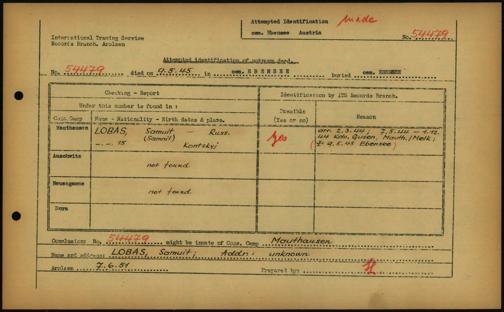 Attempted Identification Made
International Tracing Service cem. Ebensee Austria No. 54479
Records Branch, Arolsen
Attempted identification of unknown dead.
No. 54479 died on 9.5.45 in cem. EBENSEE Buried cem. EBENSEE
Checking - Report Identification by ITS Records Branch.
Under this number is found in : Possible Reason
Conc. Camp Name - Nationality - Birth dates & place. (Yes or no)
Mauthausen LOBAS, Samuil — Russ. Yes
(Samuil)
15 Kontskyj Mauth./Melk;
9.5.45 Ebensee
Auschwitz
not found
Neuengamme not found
Dora
Conclusion: No. 54479 might be inmate of Conc. Camp Mauthausen
Name and address: LOBAS, Samuil; Addr: unknown
Arolsen 7.6.51 Prepared by: